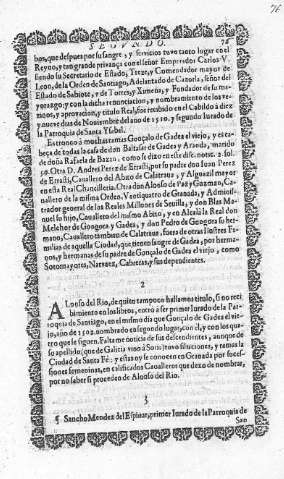 76
SEGVNDO.
bos, que despues por su sangre, y servicios tuvo tanto lugar en el
Reyno, y tan grande privança con el señor Emperador Carlos V.
siendo su Secretario de Estado, Treze, y Comendador mayor de
Leon, de la Orden de Santiago, Adelantado de Caçorla, señor del
Estado de Sabiote, y de Torres, y Ximena, y Fundador de su ma-
yorazgo: y con la dicha renunciacion, y nombramiento de los ve-
zinos, y aprovacion, y titulo Real, fue recebido en el Cabildo a diez
y nueve dias de Noviembre del año de 1510. y segundo Iurado de
la Parroquia de Santa Ysabel.
Estroncò à muchas ramas Gonçalo de Gadea el viejo, y es ca-
beça de todas la casa de don Baltasar de Gadea y Aranda, marido
de doña Rafaela de Bazan, como se dixo en este disc. nota. 2. fol.
Otra D. Andres Perez de Errasti, por su padre don Iuan Perez
de Errasti, Cavallero del Abito de Calatrava, y Alguazil mayor
en esta Real Chancilleria. Otra don Alonso de Paz y Guzman, Ca-
vallero de la misma Orden, Veintiquatro de Granada, y Adminis-
trador general de los Reales Millones de Sevilla, y don Blas Ma-
nuel su hijo, Cavallero del mismo Abito, y en Alcalà la Real don
Melchor de Gongora y Gadea, y don Pedro de Gongora su her-
mano, Cavallero tambien de Calatrava, fuera de otras ilustres Fa-
milias de aquella Ciudad, que tienen sangre de Gadea, por herma-
nos, y hermanas de su padre de Gonçalo de Gadea el viejo, como
Sotomayores, Narvaez, Cabreras, y sus dependientes.
2
Alonso del Rio, de quito tampoco hallamos titulo, si no reci-
bimiento en los libros, como a ser primer Iurado de la Parro-
quia de Santiago, en el mesmo dia que Gonçalo de Gadea el vie-
jo, año de 1502. nombrado en segundo lugar, con èl, y con los qua-
tro que se siguen. Falta me noticia de sus descendientes, aunque de
su apellido, que de Galicia vino à Soria, tuvo filiaciones, y ramas la
Ciudad de Santa Fè: y estas oy se conocen en Granada por suces-
siones femeninas, en calificados Cavalleros que dexo de nombrar,
por no saber si proceden de Alonso del Rio.
3
¶ Sancho Mendez del Espinar, primer Iurado de la Parroquia de
San